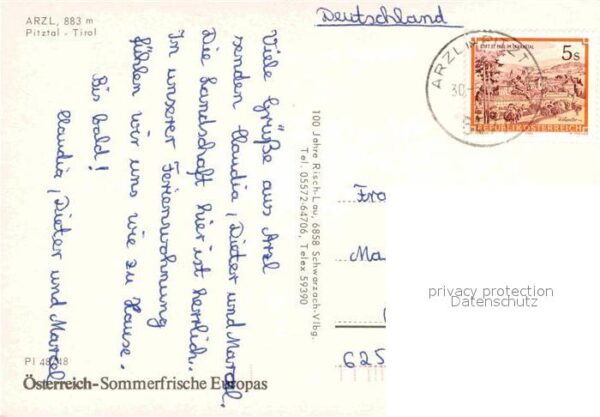 ARZL, 883 m
Pitztal - Tirol
Deutschland
Viele Grüße aus Arzl
senden Claudia, Dieter und Marcel.
Die Landschaft hier ist herrlich.
In unserer Ferienwohnung
fühlen wir uns wie zu Hause.
Bis bald!
Claudia, Dieter und Marcel
PI 48/48
Österreich-Sommerfrische Europas
100 Jahre Risch-Lau, 6858 Schwarzach-Vlbg.
Tel. 05572-64706, Telex 59390
ARZL IM PITZT
30
5s
STIFT ST. PAUL IM LAVANTTAL
REPUBLIK ÖSTERREICH
Fra
Ma
625
privacy protection
Datenschutz